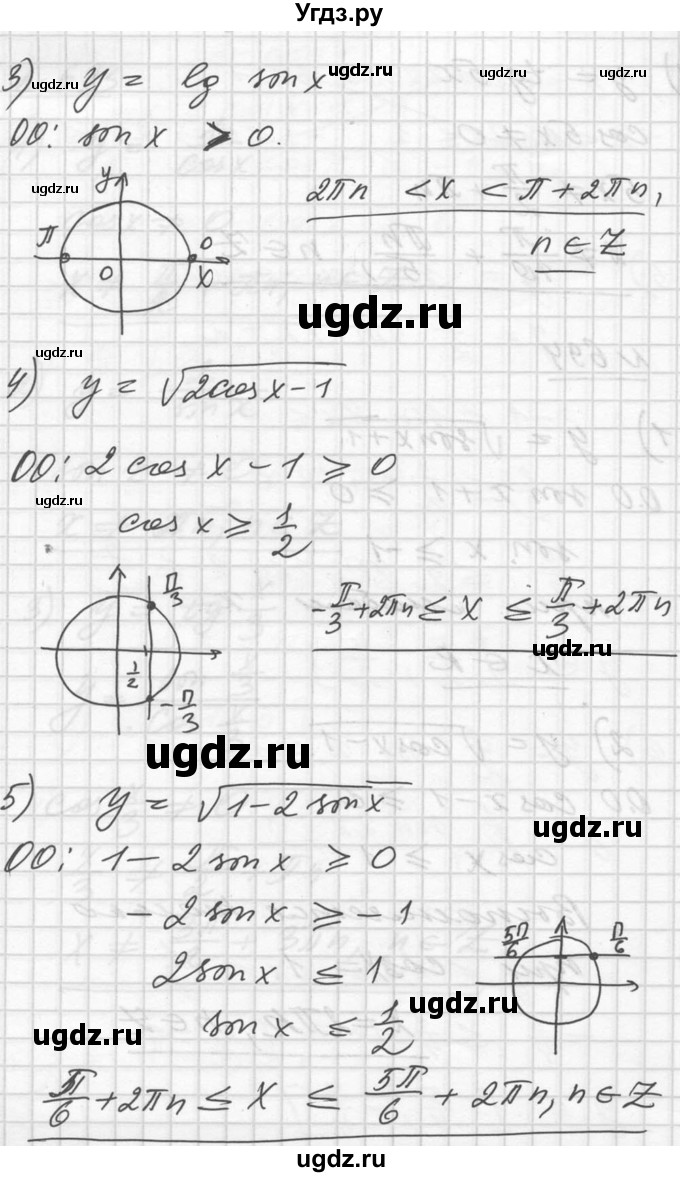 Угдз.ру
3) y = lg sin x
ugdz.ru ugdz.ru ugdz.ru
ОО: sin x > 0.
ugdz.ru
y
2πn < x < π + 2πn,
π 0
n ∈ Z
0 x
ugdz.ru ugdz.ru
ugdz.ru
4) y = √(2cos x - 1)
ОО: 2 cos x - 1 ≥ 0
ugdz.ru
cos x ≥ 1/2
π/3
-π/3 + 2πn ≤ x ≤ π/3 + 2πn
ugdz.ru
1/2
-π/3
ugdz.ru
5) y = √(1 - 2 sin x)
ugdz.ru
ОО: 1 - 2 sin x ≥ 0
- 2 sin x ≥ - 1
5π/6 π/6
2 sin x ≤ 1
ugdz.ru ugdz.ru
sin x ≤ 1/2
π/6 + 2πn ≤ x ≤ 5π/6 + 2πn, n ∈ Z
ugdz.ru